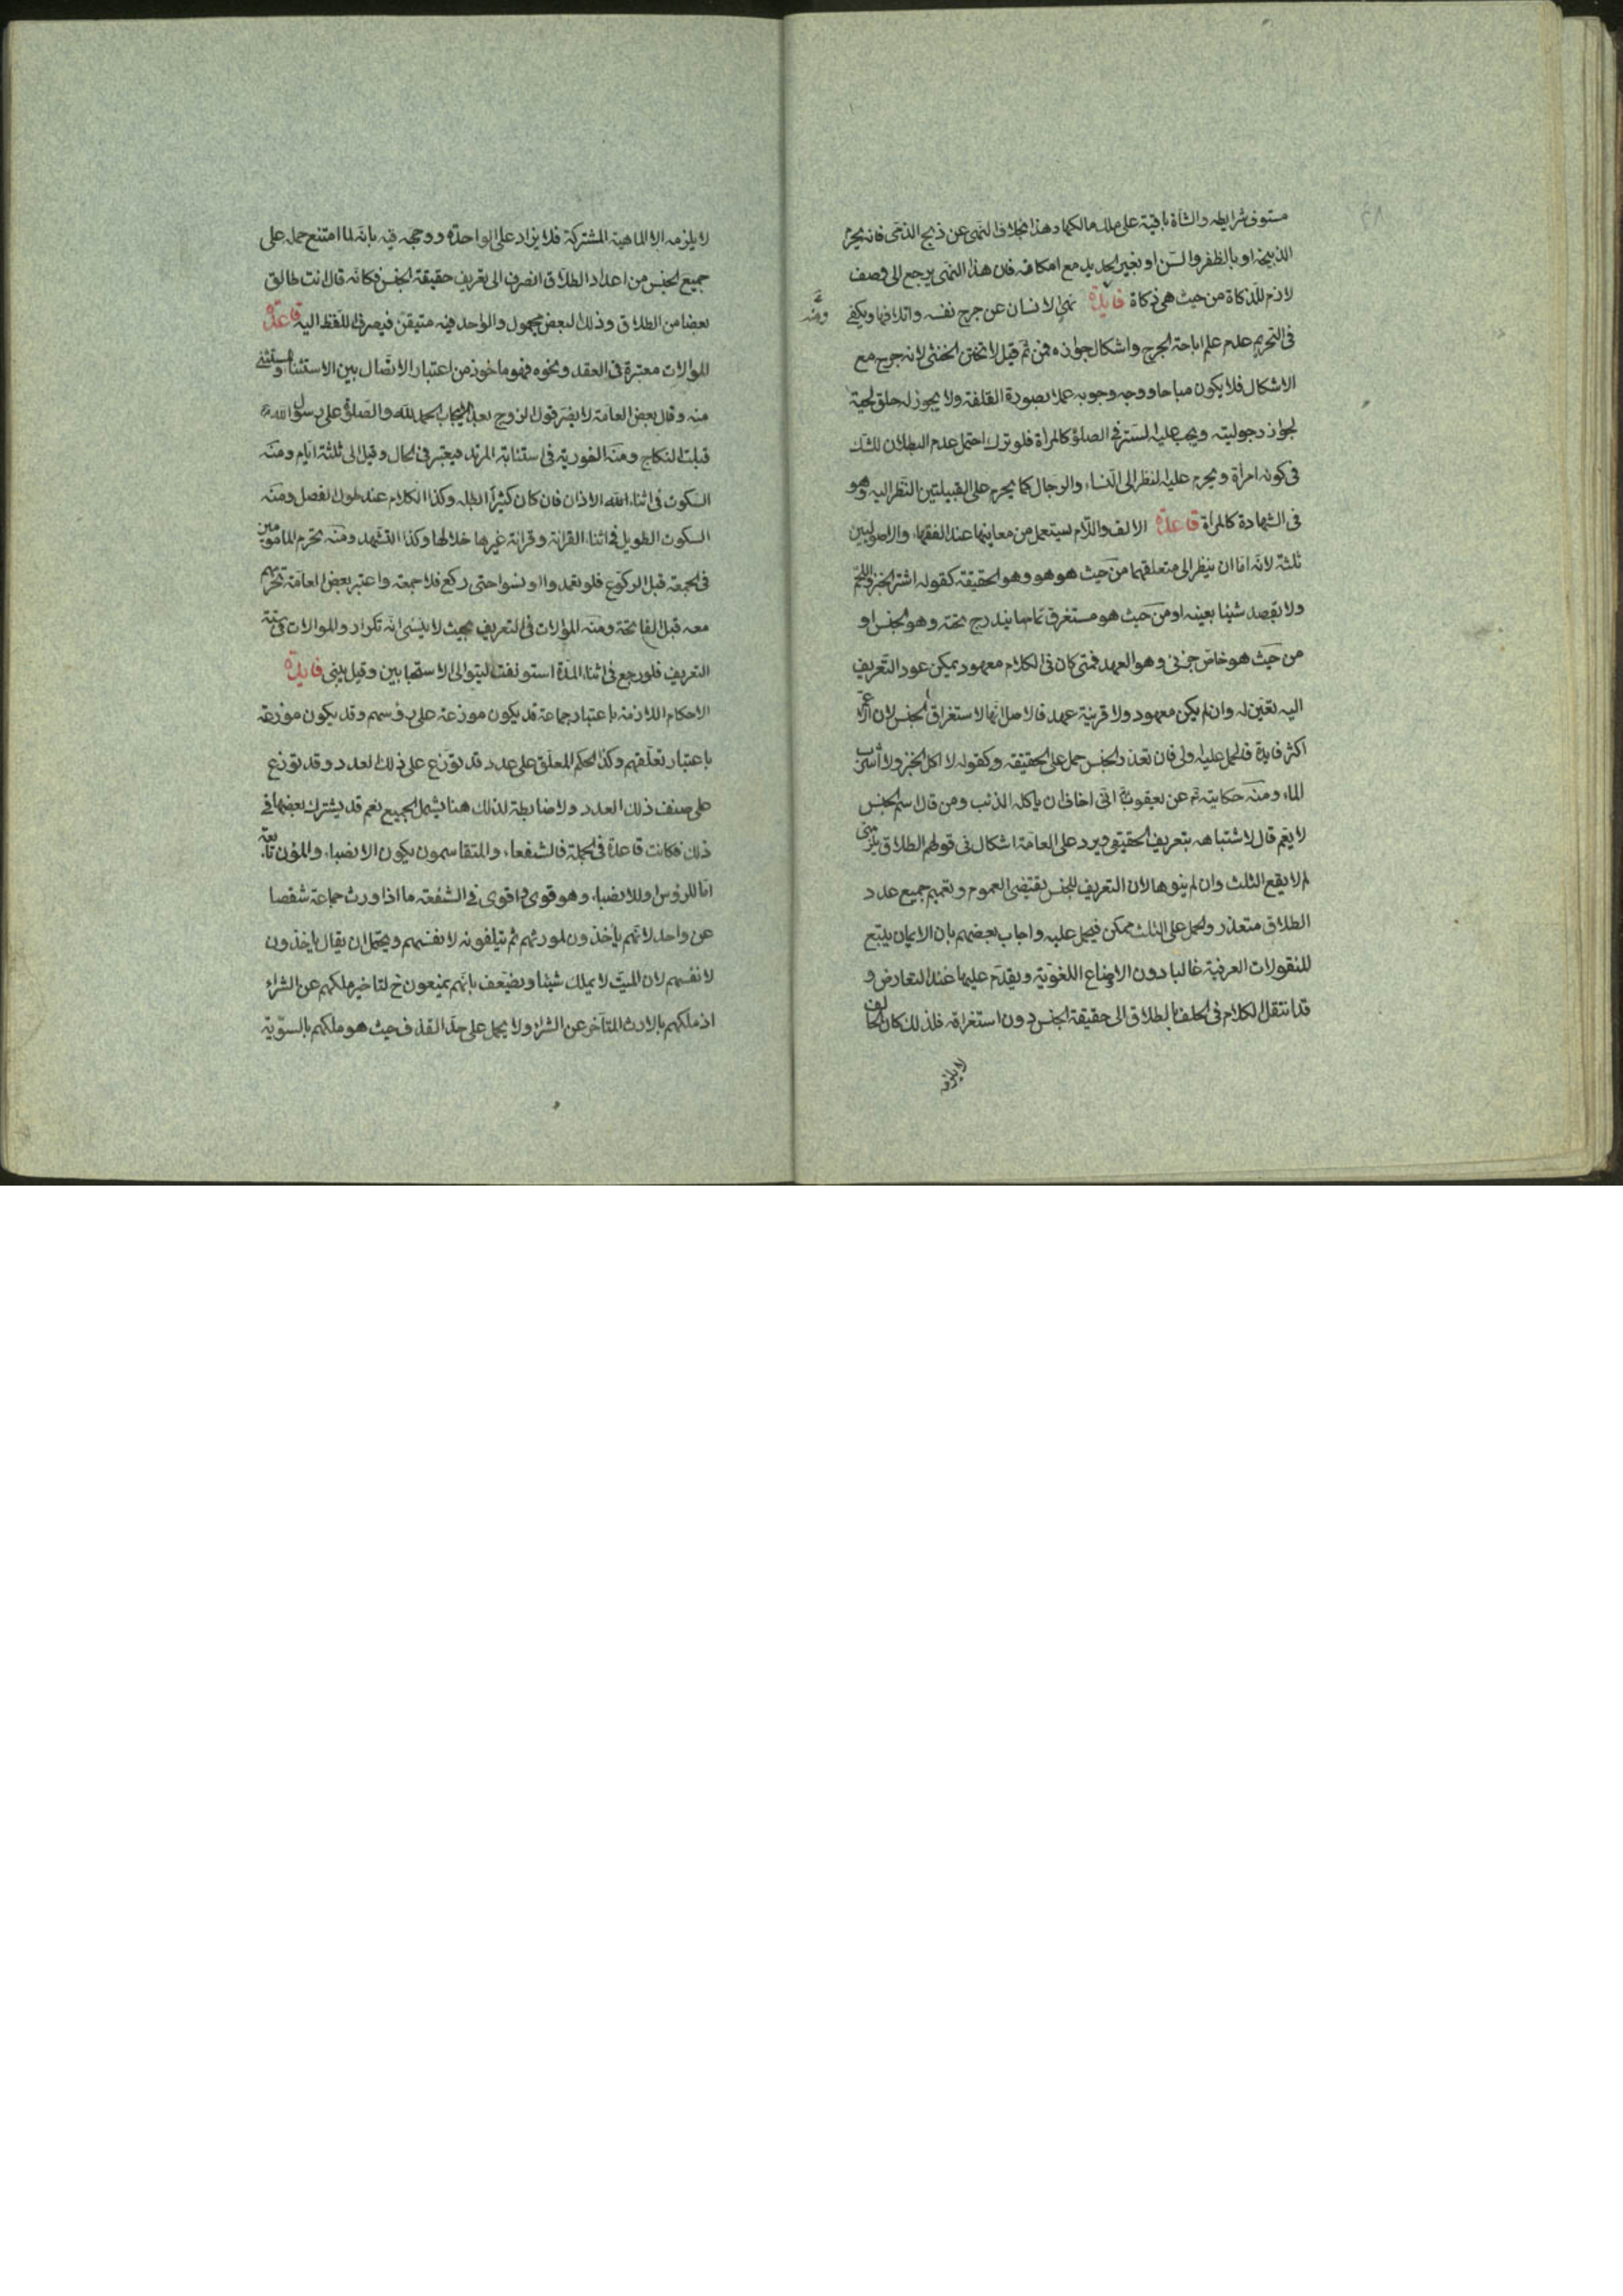 مستوف شرايطه والشاة باقية على ملك مالكها وهذا بخلاف النهى عن ذبح الذمى فانه يحرم
الذبيحة او بالظفر والسن او بغير الحديد مع امكانه فان هذا النهى يرجع الى وصف
لازم للذكاة من حيث هى ذكاة فايدة نهى الانسان عن جرح نفسه واتلافها ويكفى
فى التحريم عدم علم اباحة الجرح واشكال جوازه فمن ثم قيل لا تختن الخنثى لانه جرح مع
الاشكال فلا يكون مباحا ووجه وجوبه عملا بصورة القلفة ولا يجوز له حلق لحيته
لجواز رجوليته ويجب عليه الستر فى الصلوة كالمراة فلو ترك احتمل عدم البطلان للشك
فى كونه امراة ويحرم عليه النظر الى النساء والرجال كما يحرم على القبيلتين النظر اليه وهو
فى الشهادة كالمراة قاعدة الالف واللام يستعمل من معاينها عند الفقهاء والاصوليين
ثلثة لانه اما ان ينظر الى متعلقهما من حيث هو هو وهو الحقيقة كقوله اشتر الخبز واللحم
ولا يقصد شيئا بعينه او من حيث هو مستغرق تمام ما يندرج تحته وهو الجنس او
من حيث هو خاص جزئى وهو العهد فمتى كان فى الكلام معهود يمكن عود التعريف
اليه تعين له وان لم يكن معهود ولا قرينة عهد فالاصل انها لاستغراق الجنس لان
اكثر فايدة فالحمل عليه اولى فان تعذر الجنس حمل على الحقيقة وكقوله لا اكل الخبز ولا اشرب
الماء ومنه حكايته تع عن يعقوب انى اخاف ان ياكله الذئب ومن قال اسم الجنس
لا يعم قال لاشتباهه بتعريف الحقيقى ويرد على العامة اشكال فى قولهم الطلاق يلزمنى
لم لا يقع الثلث وان لم ينوها لان التعريف للجنس يقتضى العموم وتعميم جميع عدد
الطلاق متعذر والحمل على الثلث ممكن فيحمل عليه واجاب بعضهم بان الايمان يتبع
للنقولات العرفية غالبا دون الاوضاع اللغوية ويقدم عليها عند التعارض و
قد انتقل الكلام فى الحلف بالطلاق الى حقيقة الجنس دون استغراقه فلذلك كان الحالف
لا يلزمه
لا يلزمه الا الماهية المشتركة فلا يزاد على الواحدة ووجه فيه بانه لما امتنع حمله على
جميع الجنس من اعداد الطلاق انصرف الى تعريف حقيقة الجنس فكانه قال انت طالق
بعضا من الطلاق وذلك البعض مجهول والواحد فيه متيقن فيصرف اللفظ اليه قاعدة
الموالات معتبرة فى العقد ونحوه فهو ماخوذ من اعتبار الاتصال بين الاستثنا والمستثنى
منه وقال بعض العامة لا يضر قول الزوج بعد الايجاب الحمد لله والصلوة على رسول الله
قبلت النكاح ومنه الفورية فى استتابة المرتد فيعتبر فى الحال وقيل الى ثلثة ايام ومنه
السكوت فى اثناء الاذان فان كان كثيرا ابطله وكذا الكلام عند طول الفصل ومنه
السكوت الطويل فى اثناء القراءة وقراءة غيرها خلالها وكذا التشهد ومنه تحرم المامومين
فى الجمعة قبل الركوع فلو تعمدوا او نسوا حتى ركع فلا جمعة واعتبر بعض العامة تحرمهم
معه قبل الفاتحة ومنه الموالات فى التعريف بحيث لا ينسى انه تكرار والموالات فى سنة
التعريف فلو رجع فى اثناء المدة استونفت ليتوالى الاستحبابين وقيل يبنى فايدة
الاحكام اللازمة باعتبار جماعة قد يكون موزعة على رؤسهم وقد يكون موزعة
باعتبار تعلقهم وكذا الحكم المعلق على عدد قد توزع على ذلك العدد وقد توزع
على صنف ذلك العدد ولا ضابطة لذلك هنا يشمل الجميع نعم قد يشترك بعضها فى
ذلك فكانت قاعدة فى الجملة فالشفعاء والمتقاسمون يكون الانصباء والمؤن تابعة
اما للرؤس او للانصباء وهو قوى واقوى فى الشفعة ما اذا ورث جماعة شقصا
عن واحد لانهم ياخذون لمورثهم ثم يتلقونه لانفسهم ويحتمل ان يقال ياخذون
لانفسهم لان الميت لا يملك شيئا ويضعف بانهم يمنعون ح لتاخير ملكهم عن الشراء
اذ ملكهم بالارث المتاخر عن الشراء ولا يحمل على حد القذف حيث هو ملكهم بالسوية